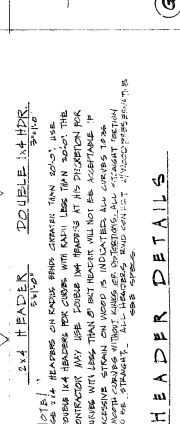 2x4 HEADER
3"=1'-0"
DOUBLE 1x4 HDR.
3"=1'-0"
NOTE/
USE 2x4 HEADERS ON RADIUS BENDS GREATER THAN 20'-0". USE
DOUBLE 1x4 HEADERS FOR CURVES WITH RADII LESS THAN 20'-0". THE
CONTRACTOR MAY USE DOUBLE 1x4 HEADERS AT HIS DISCRETION FOR
CURVES WITH LESS THAN 8' BUT HEADER WILL NOT BE ACCEPTABLE IF
EXCESSIVE STRAIN ON WOOD IS INDICATED. ALL CURVES TO BE
SMOOTH CURVES WITHOUT KINKS OR DISTORTIONS, ALL STRAIGHT PORTION
TO BE STRAIGHT. ALL HEADERS
SEE SPECS.
HEADER DETAILS